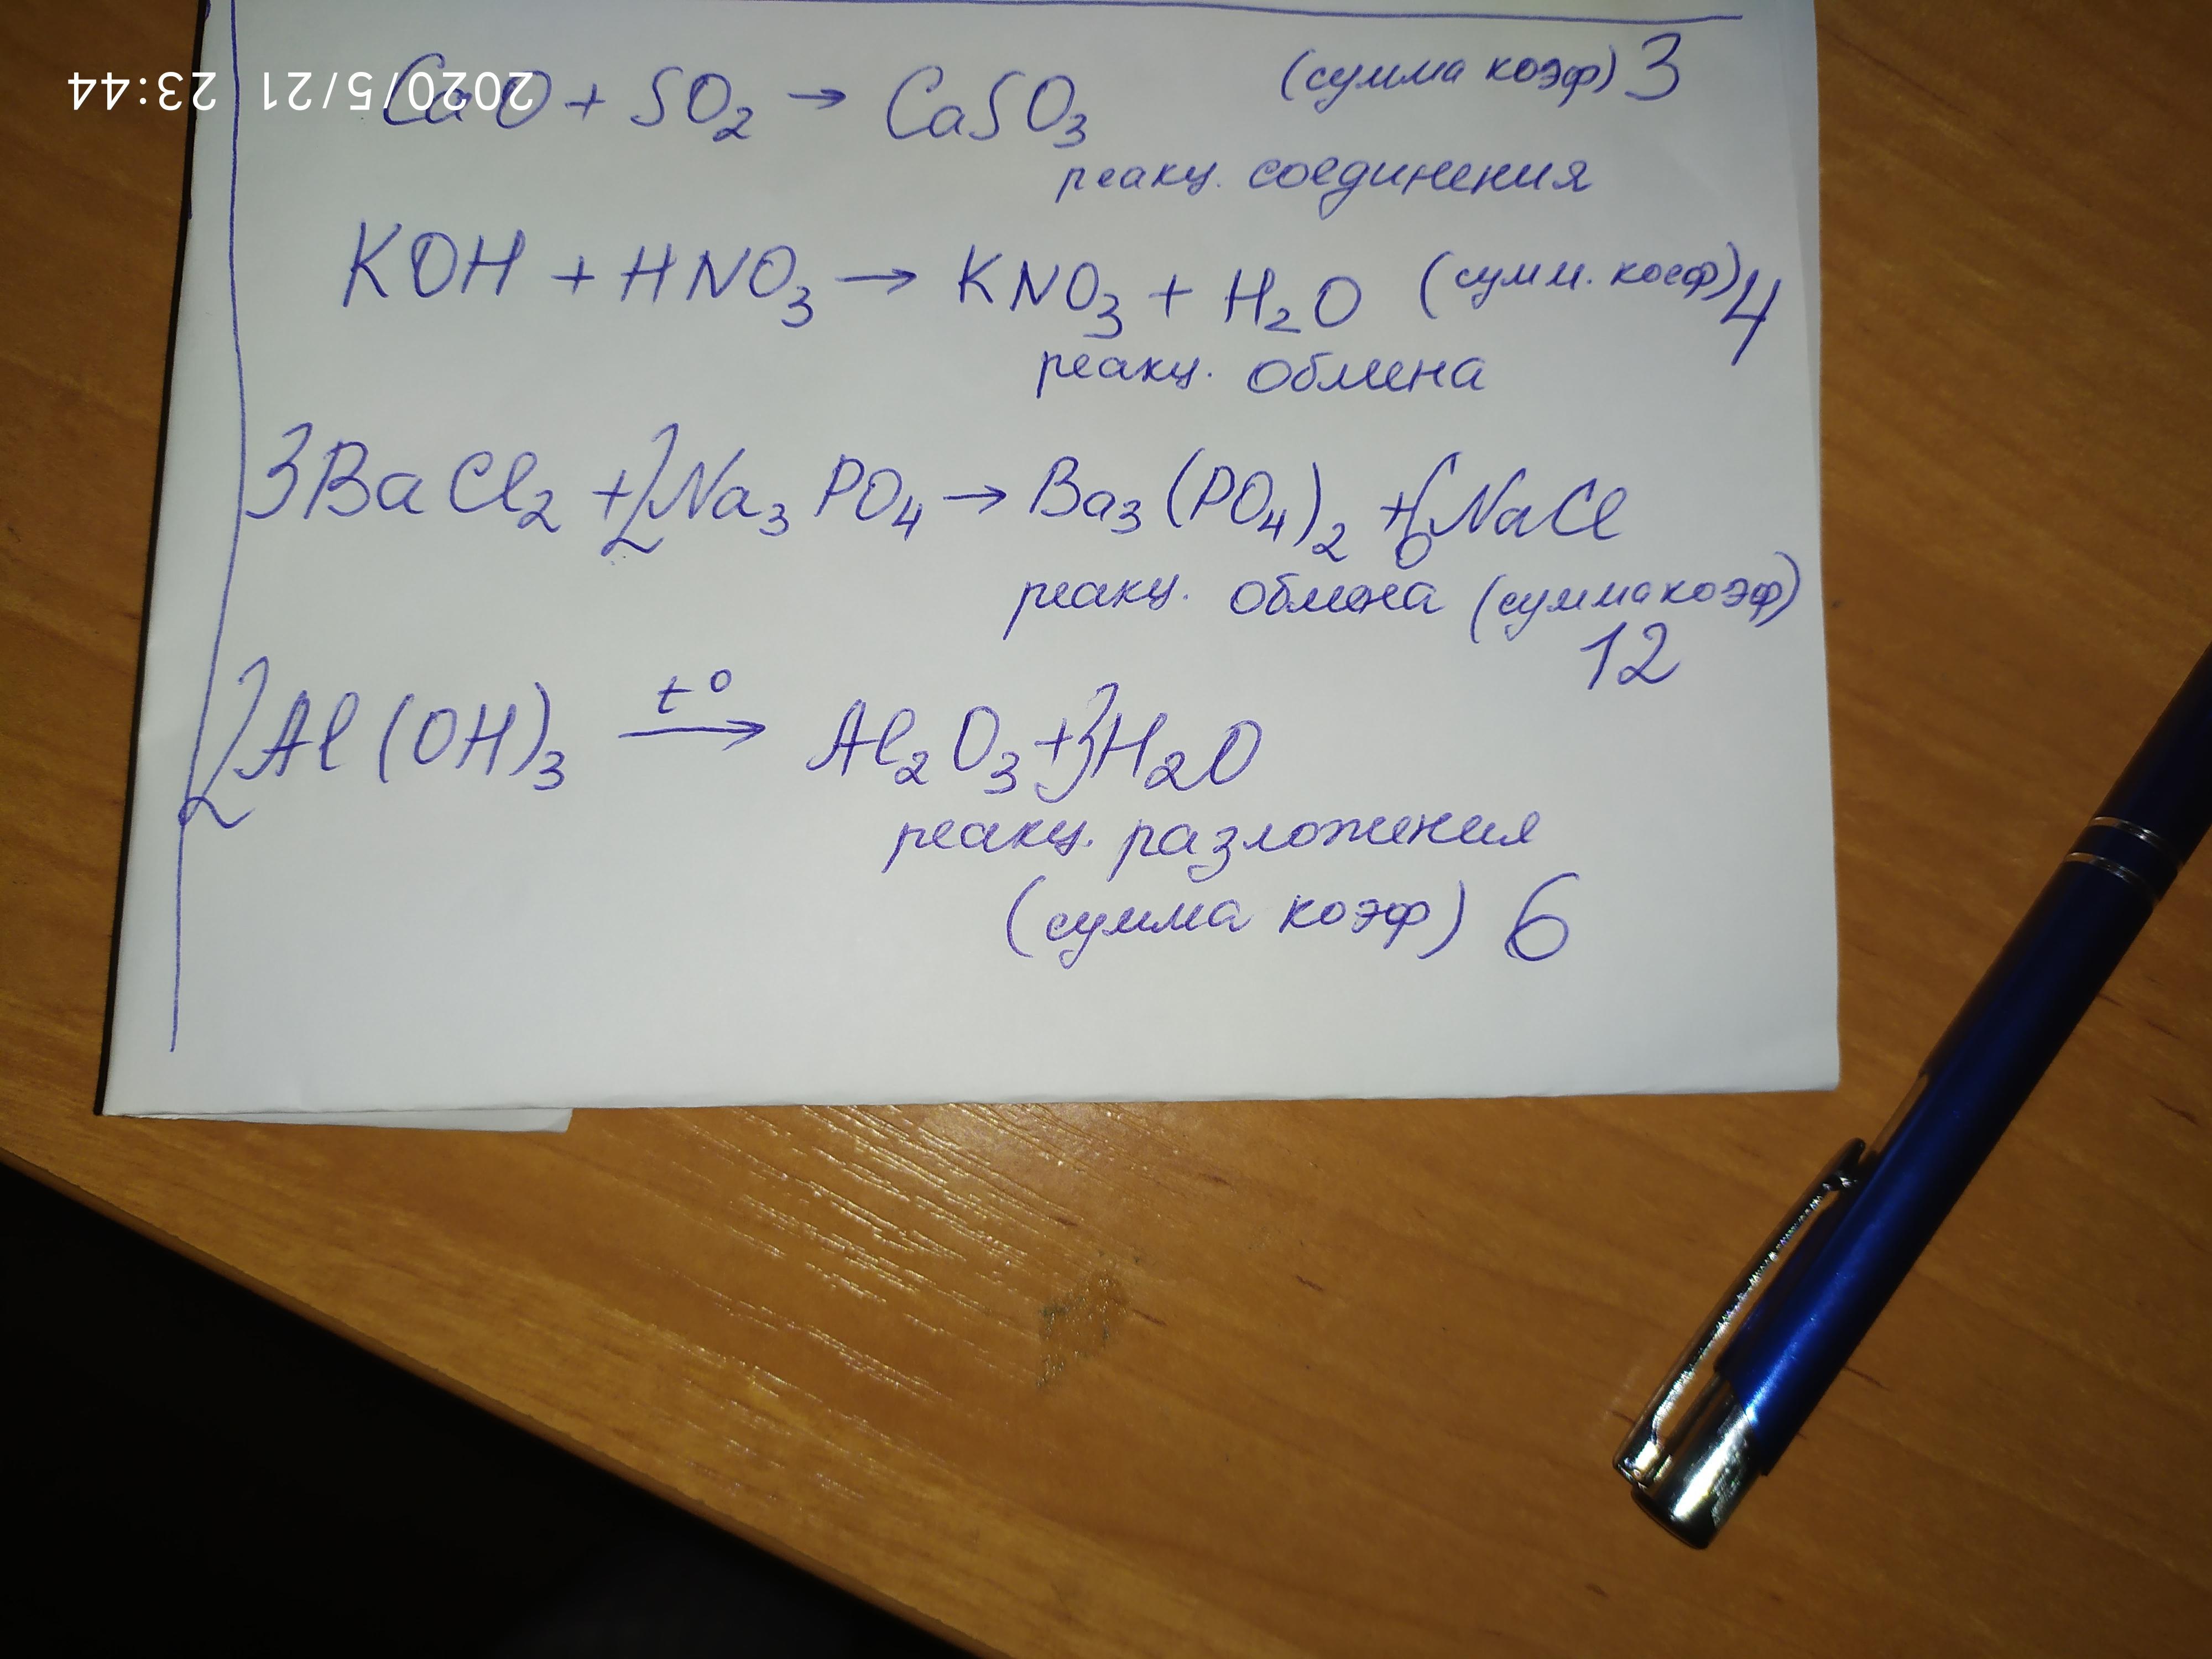 2020/5/21 23:44
CaO + SO₂ → CaSO₃ (сумма коэф) 3
реакц. соединения
KOH + HNO₃ → KNO₃ + H₂O (сумм. коеф) 4
реакц. обмена
3BaCl₂ + 2Na₃PO₄ → Ba₃(PO₄)₂ + 6NaCl
реакц. обмена (сумма коэф)
12
2Al(OH)₃ t° → Al₂O₃ + 3H₂O
реакц. разложения
(сумма коэф) 6